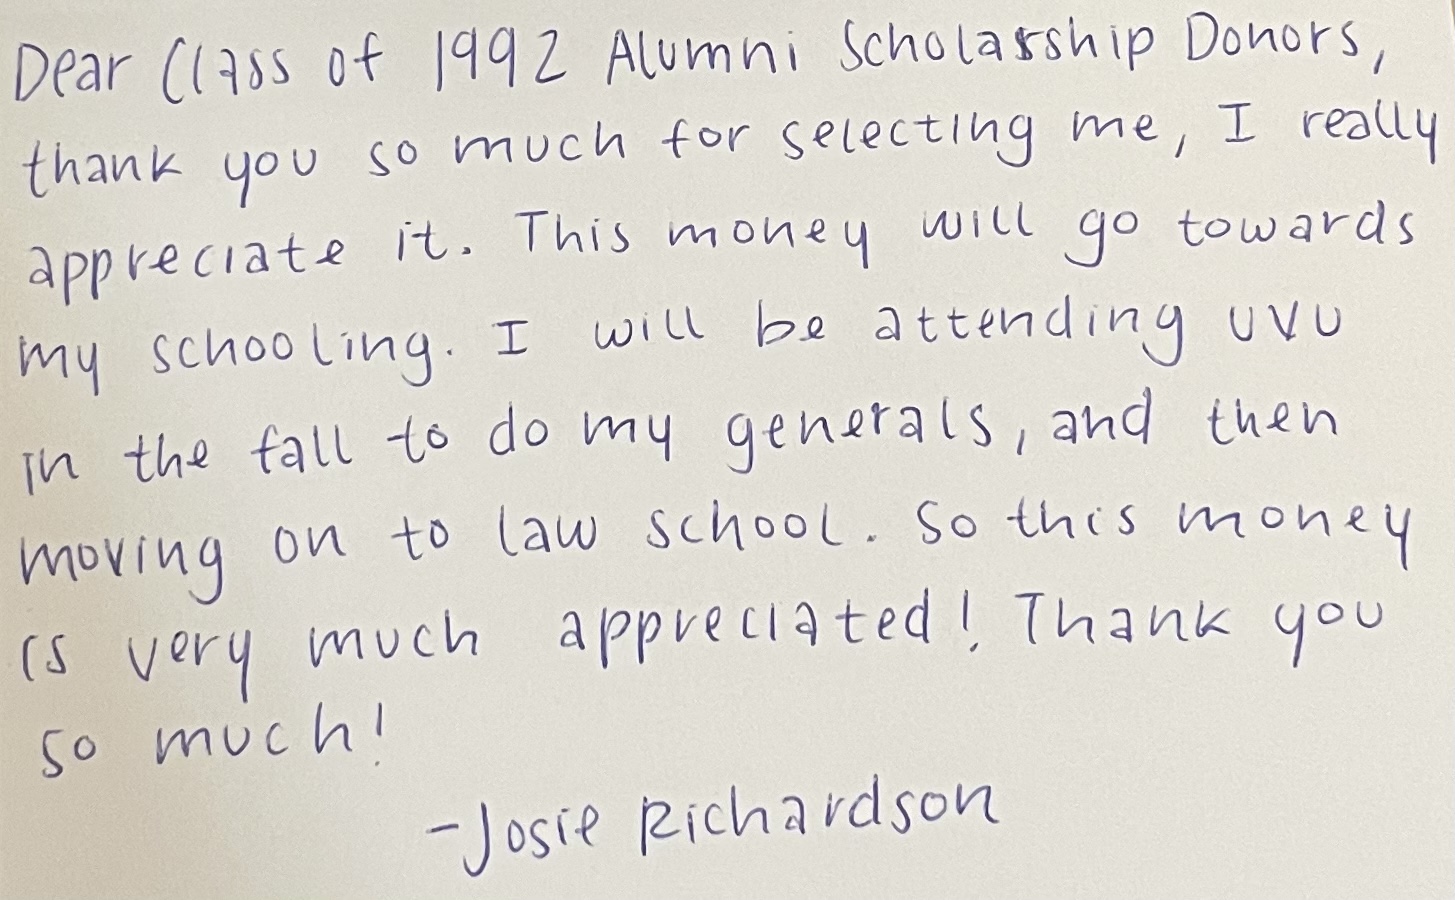 Dear Class of 1992 Alumni Scholarship Donors,
thank you so much for selecting me, I really
appreciate it. This money will go towards
my schooling. I will be attending UVU
in the fall to do my generals, and then
moving on to law school. So this money
is very much appreciated! Thank you
so much!
-Josie Richardson